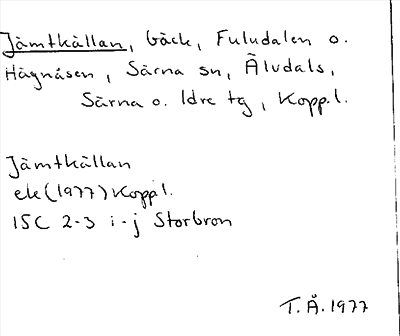 Jämtkällan, bäck, Fuludalen o.
Hägnåsen, Särna sn, Älvdals,
Särna o. Idre tg, Kopp.l.
Jämtkällan
ek (1977) Kopp l.
15C 2-3 i-j Storbron
T.Å. 1977